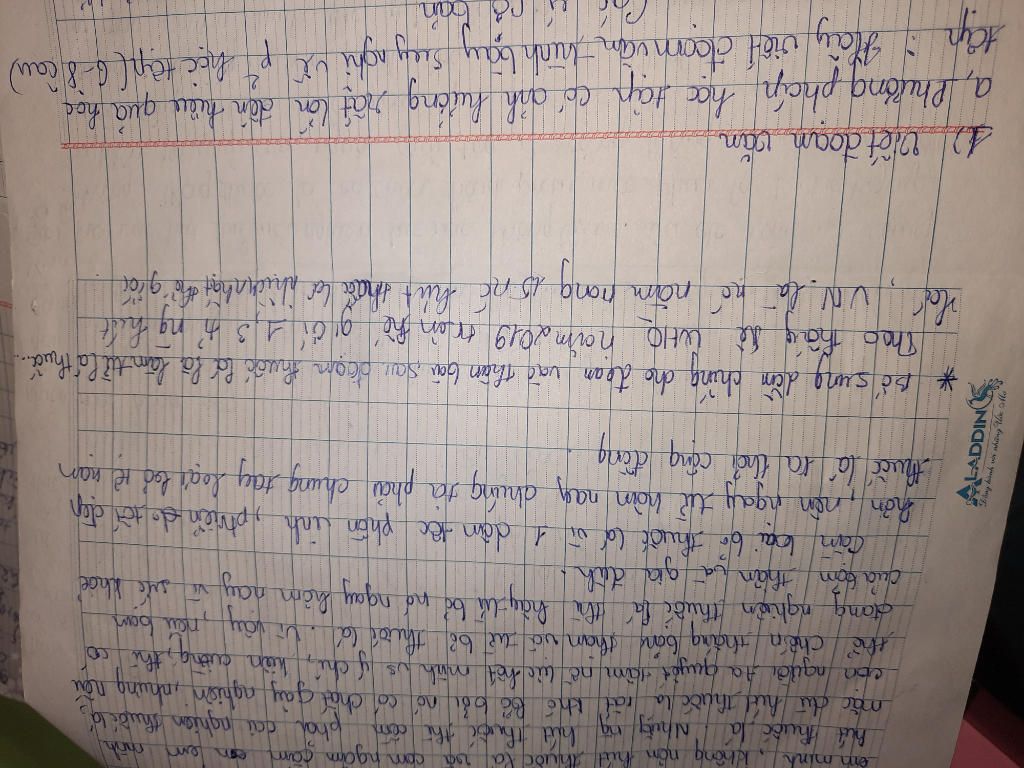 em mình, không nên hút thuốc lá và con em mình
hút thuốc lá. Những ng hút thuốc thì cần phải cai nghiện thuốc lá
mặc dù hút thuốc lá rất khó bỏ bởi nó có chất gây nghiện, nhưng nếu
con người ta quyết tâm nỗ lực hết mình vs ý chí, kiên cường, thì có
thể chiến thắng bản thân và từ bỏ thuốc lá. Vì vậy, nếu bạn
đang nghiện thuốc lá thì hãy từ bỏ nó ngay hôm nay vì sức khoẻ
của bản thân và gia đình.
Cần loại bỏ thuốc lá vì 1 dân tộc phồn vinh, ptriển, tốt đẹp
hơn, nên ngay từ hôm nay chúng ta phải chung tay loại bỏ tệ nạn
thuốc lá ra khỏi cộng đồng.
ALADDIN
* Bổ sung dẫn chứng cho đoạn vào thân bài sau đoạn thuốc lá là làm từ lá thuố...
Theo thống kê WHO năm 2019 trên thế giới 1,3 tỉ ng hút
VN là nc nằm trong 15 nc hút thuốc lá nhiều nhất thế giới
1) viết đoạn văn
a, Phương pháp học tập có ảnh hưởng rất lớn đến hiệu quả học
tập: Hãy viết đoạn văn trình bày suy nghĩ về p² học tập (6-8 câu)
cơ bản